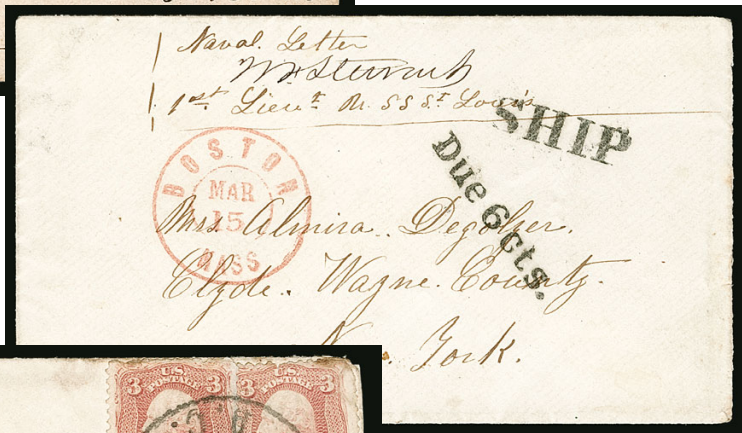 Naval. Letter
1st. Lieut. U.S.S St. Louis
SHIP
Due 6cts.
BOSTON
MAR
15
MASS
Mrs. Almira. Degolyer.
Clyde. Wayne. County.
N. York.
U.S.
POSTAGE
3 3
U.S.
POSTAGE
3 3